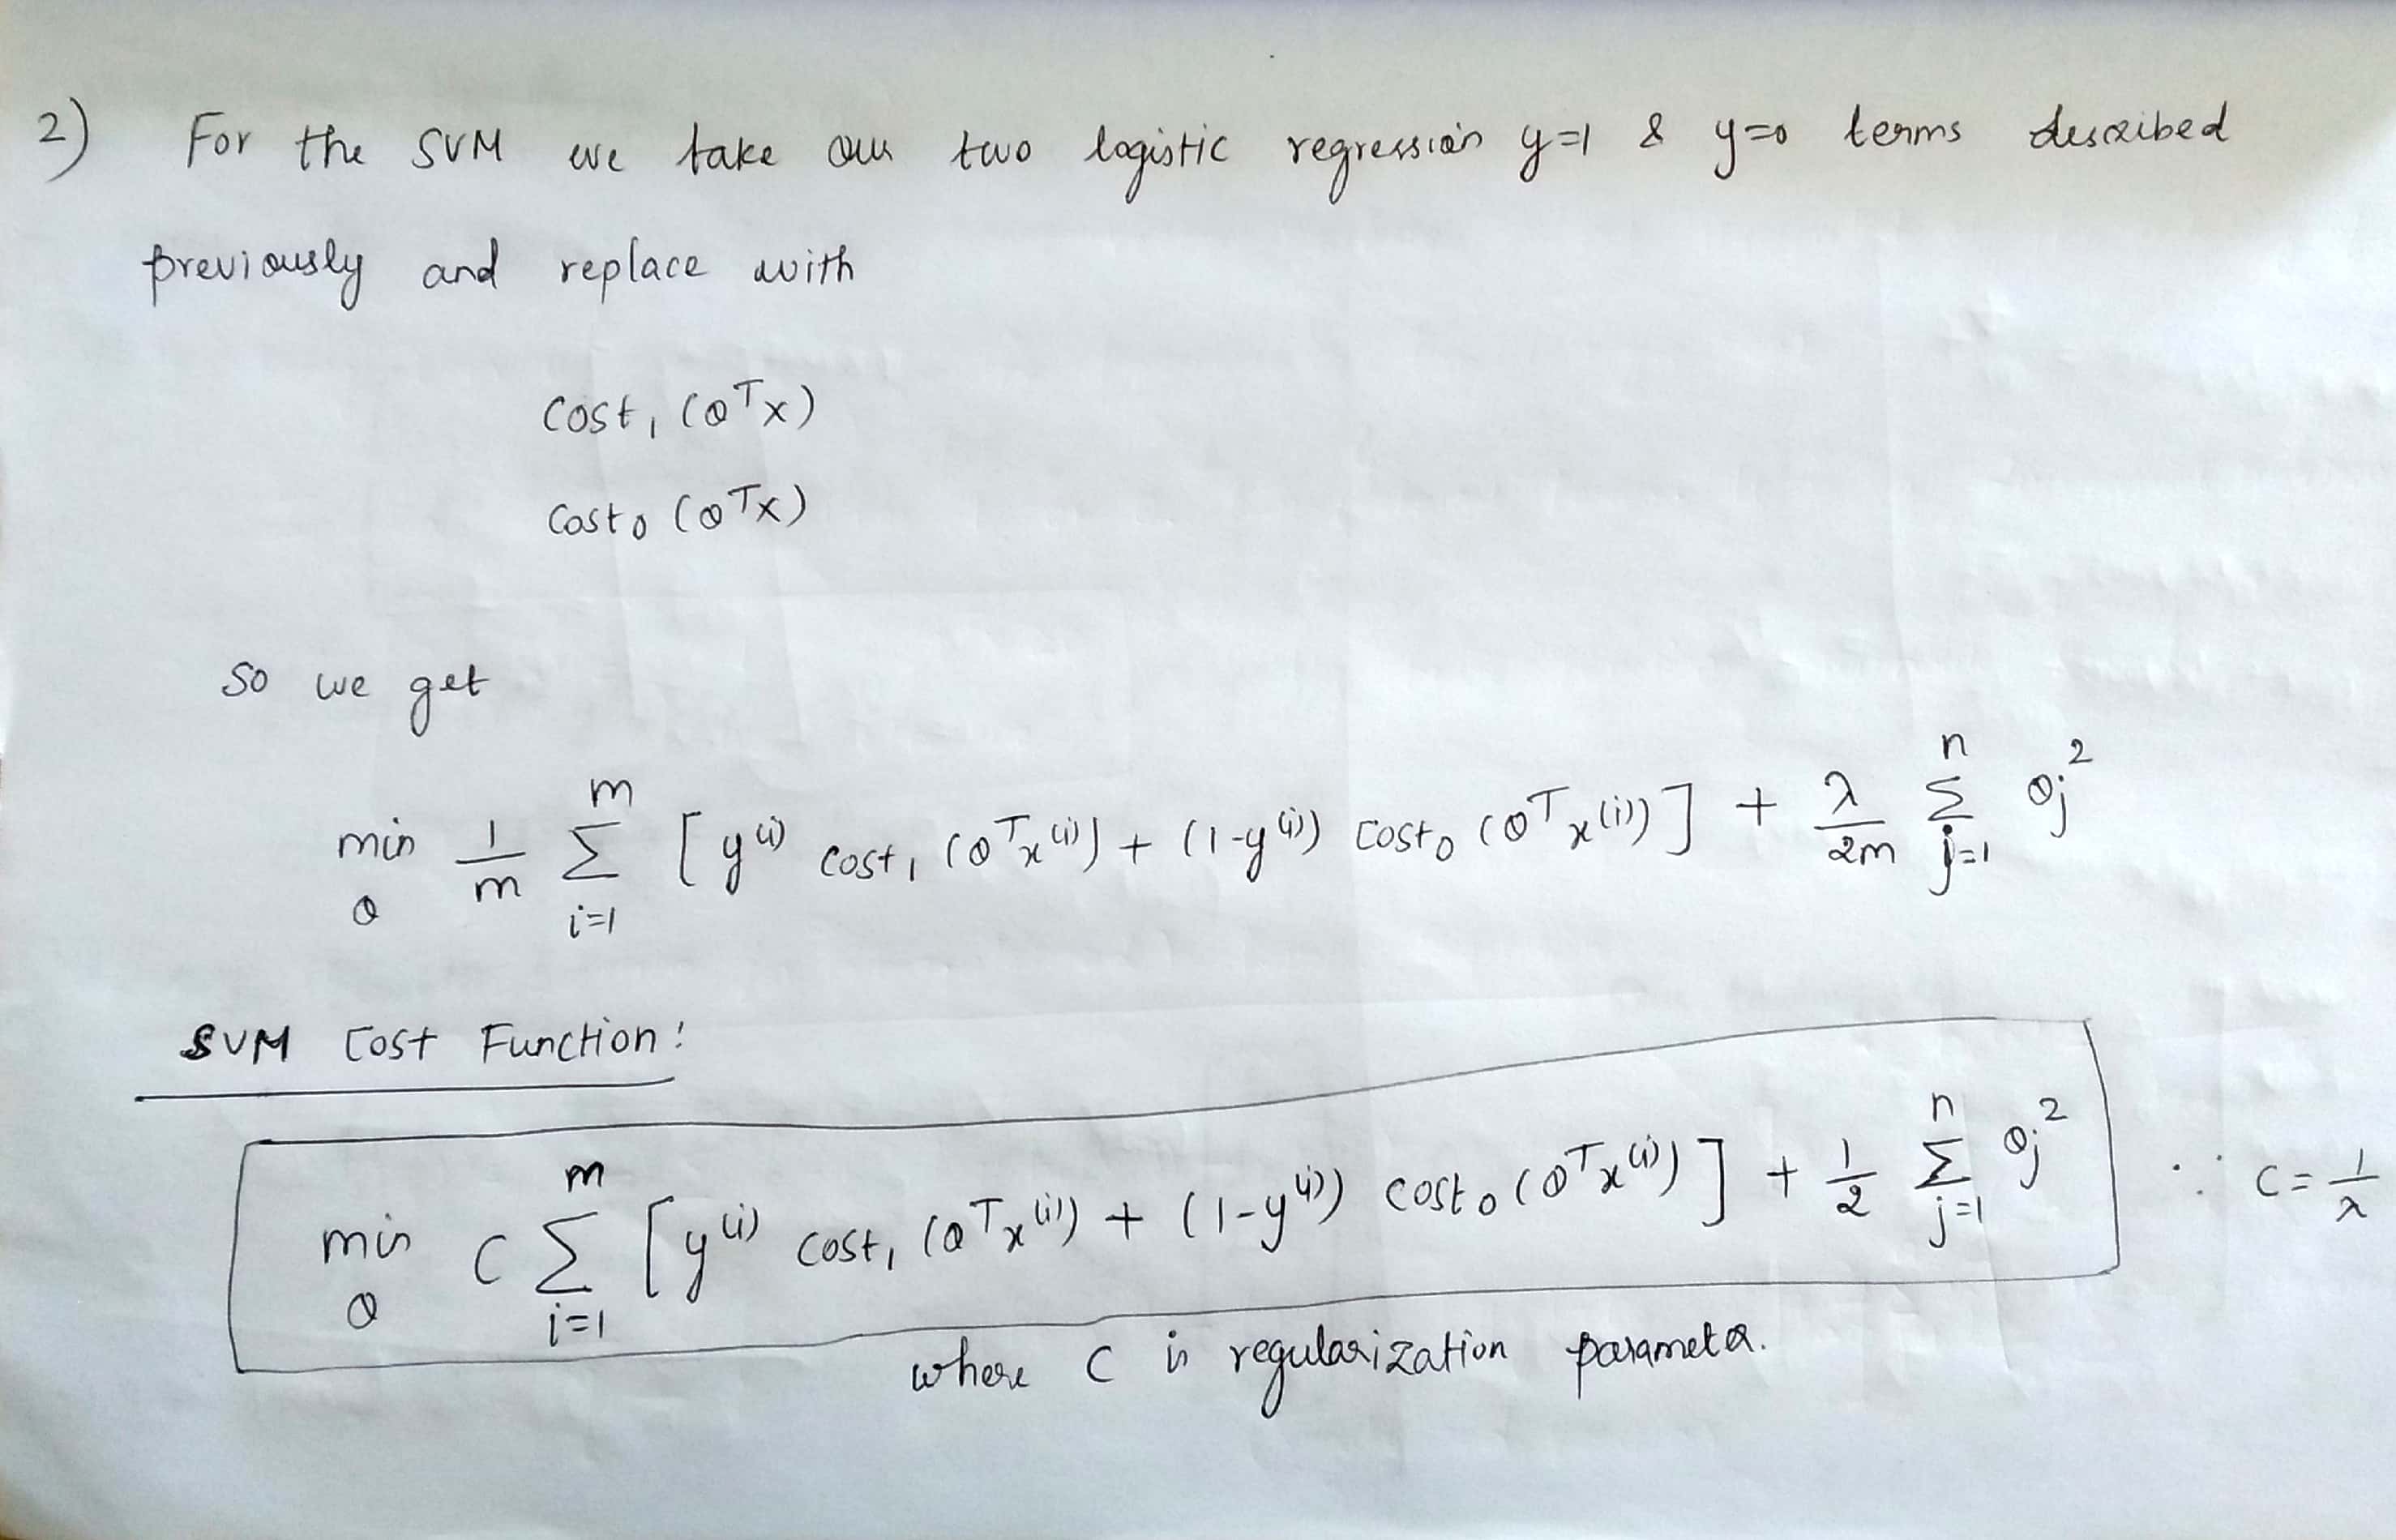 2) For the SVM we take our two logistic regression y=1 & y=0 terms described
previously and replace with
Cost₁ (θᵀx)
Cost₀ (θᵀx)
So we get
min_θ 1/m Σ_{i=1}^{m} [y⁽ⁱ⁾ cost₁ (θᵀx⁽ⁱ⁾) + (1-y⁽ⁱ⁾) cost₀ (θᵀx⁽ⁱ⁾)] + λ/2m Σ_{j=1}^{n} θⱼ²
SVM Cost Function:
min_θ C Σ_{i=1}^{m} [y⁽ⁱ⁾ cost₁ (θᵀx⁽ⁱ⁾) + (1-y⁽ⁱ⁾) cost₀ (θᵀx⁽ⁱ⁾)] + 1/2 Σ_{j=1}^{n} θⱼ² ∵ C = 1/λ
where C is regularization parameter.